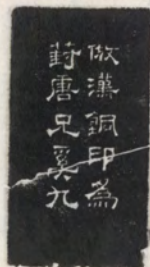 倣漢銅印為
葑唐兄奚九